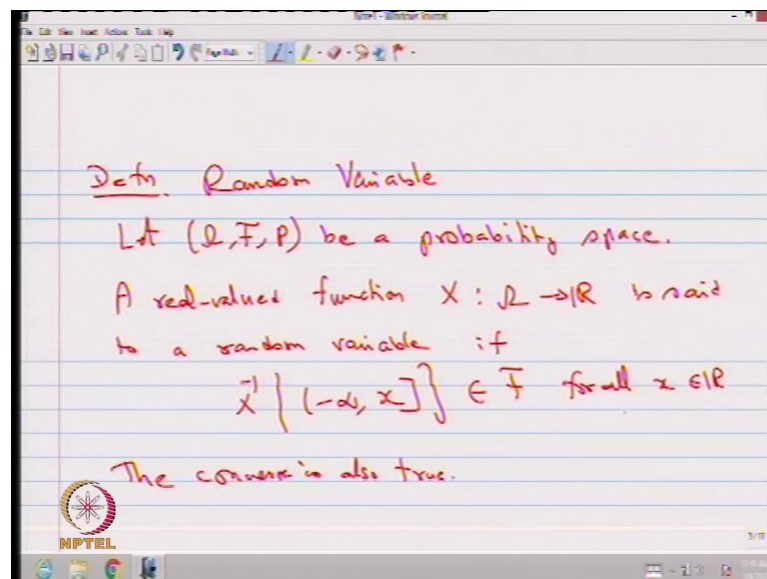 Note1 - Windows Journal
File Edit View Insert Actions Tools Help
Page Width
Defn. Random Variable
Let (Ω, F, P) be a probability space.
A real-valued function X : Ω → ℝ is said
to a random variable if
X⁻¹{(-∞, x]} ∈ F for all x ∈ ℝ
The converse is also true.
NPTEL